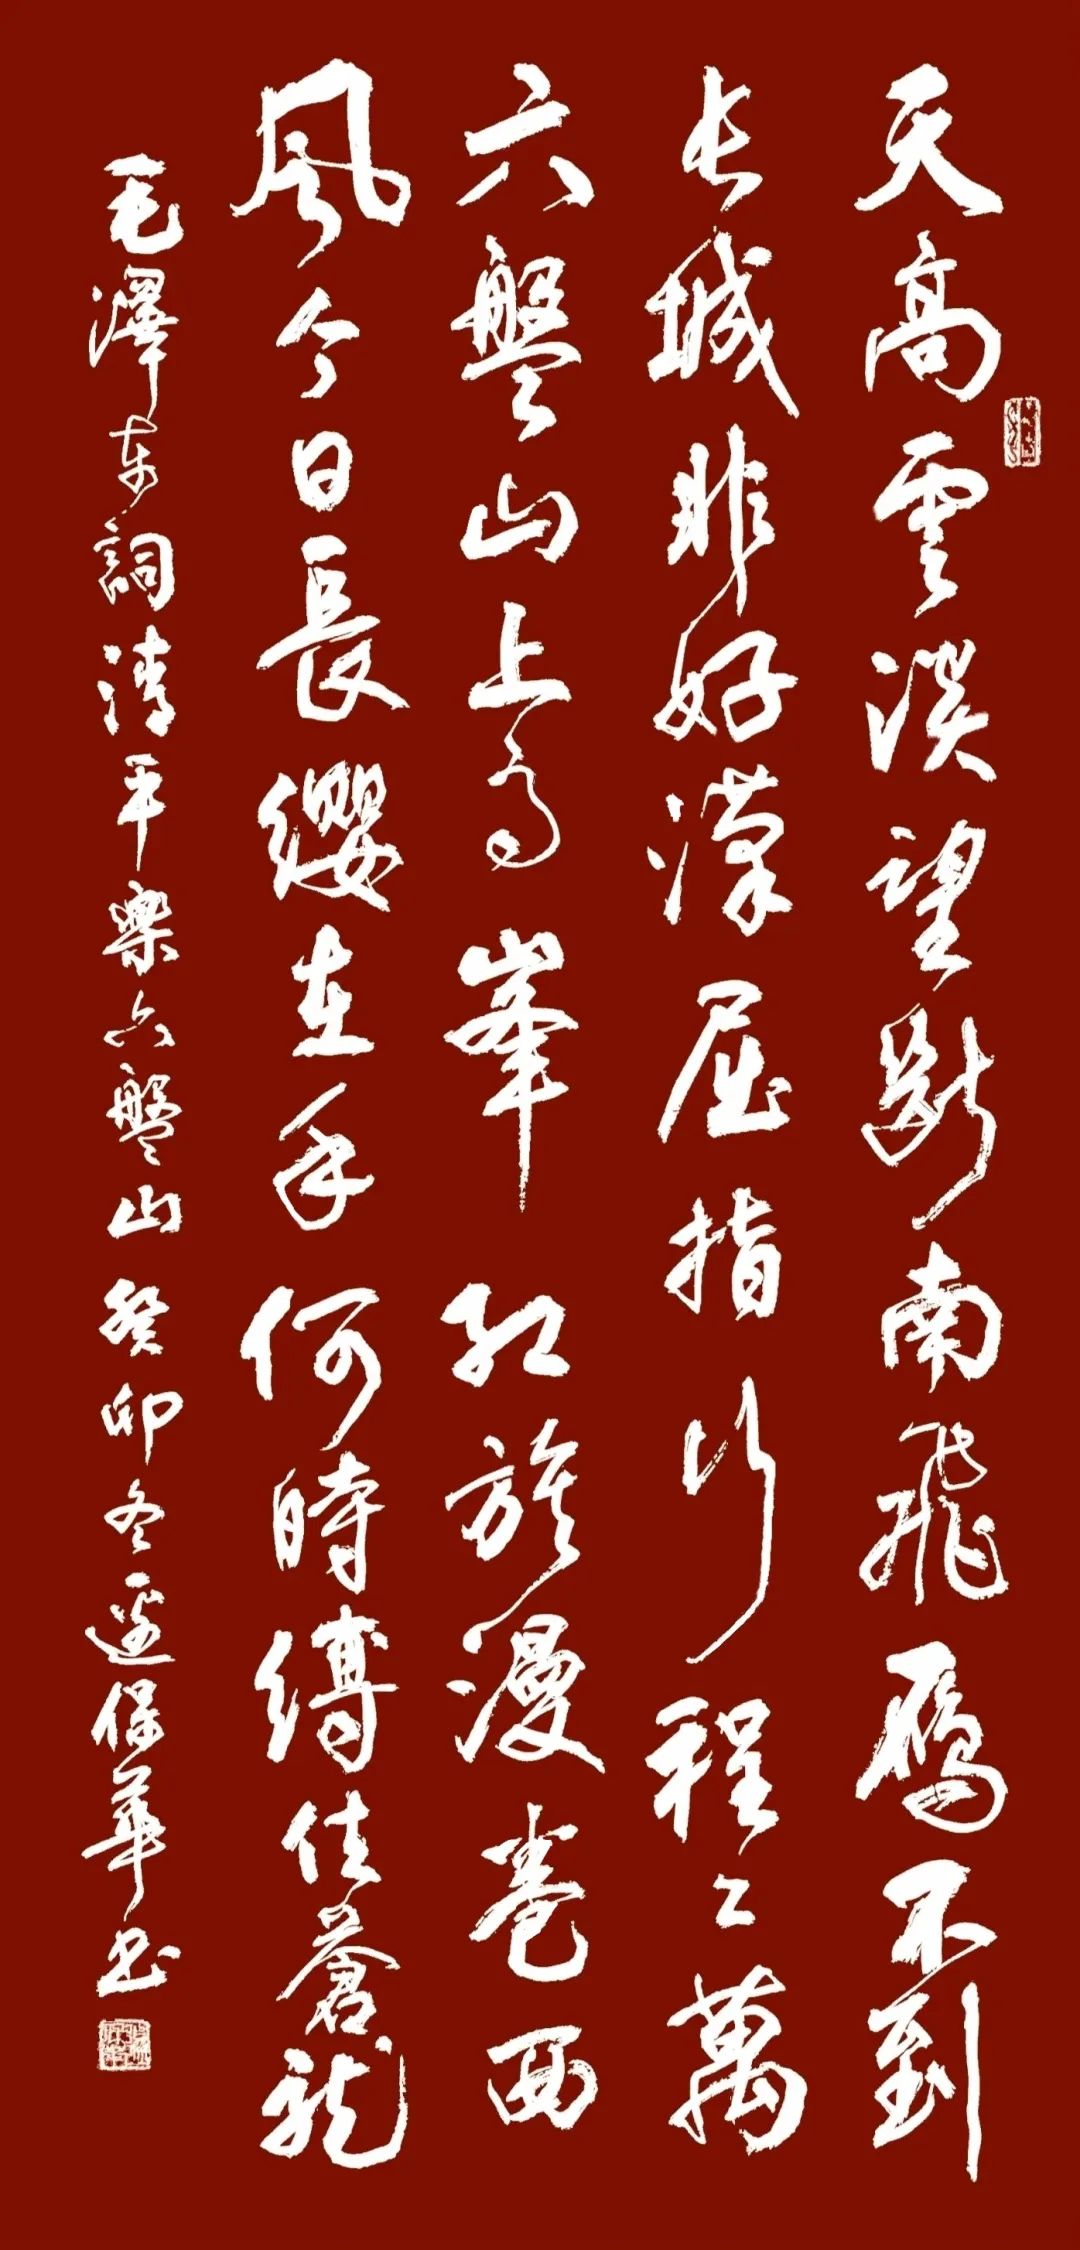 天高雲淡望斷南飛雁不到
长城非好漢屈指行程二萬
六盤山上高峯紅旗漫卷西
風今日長纓在手何時縛住蒼龍
毛澤东詞清平樂六盤山 癸卯冬保華书